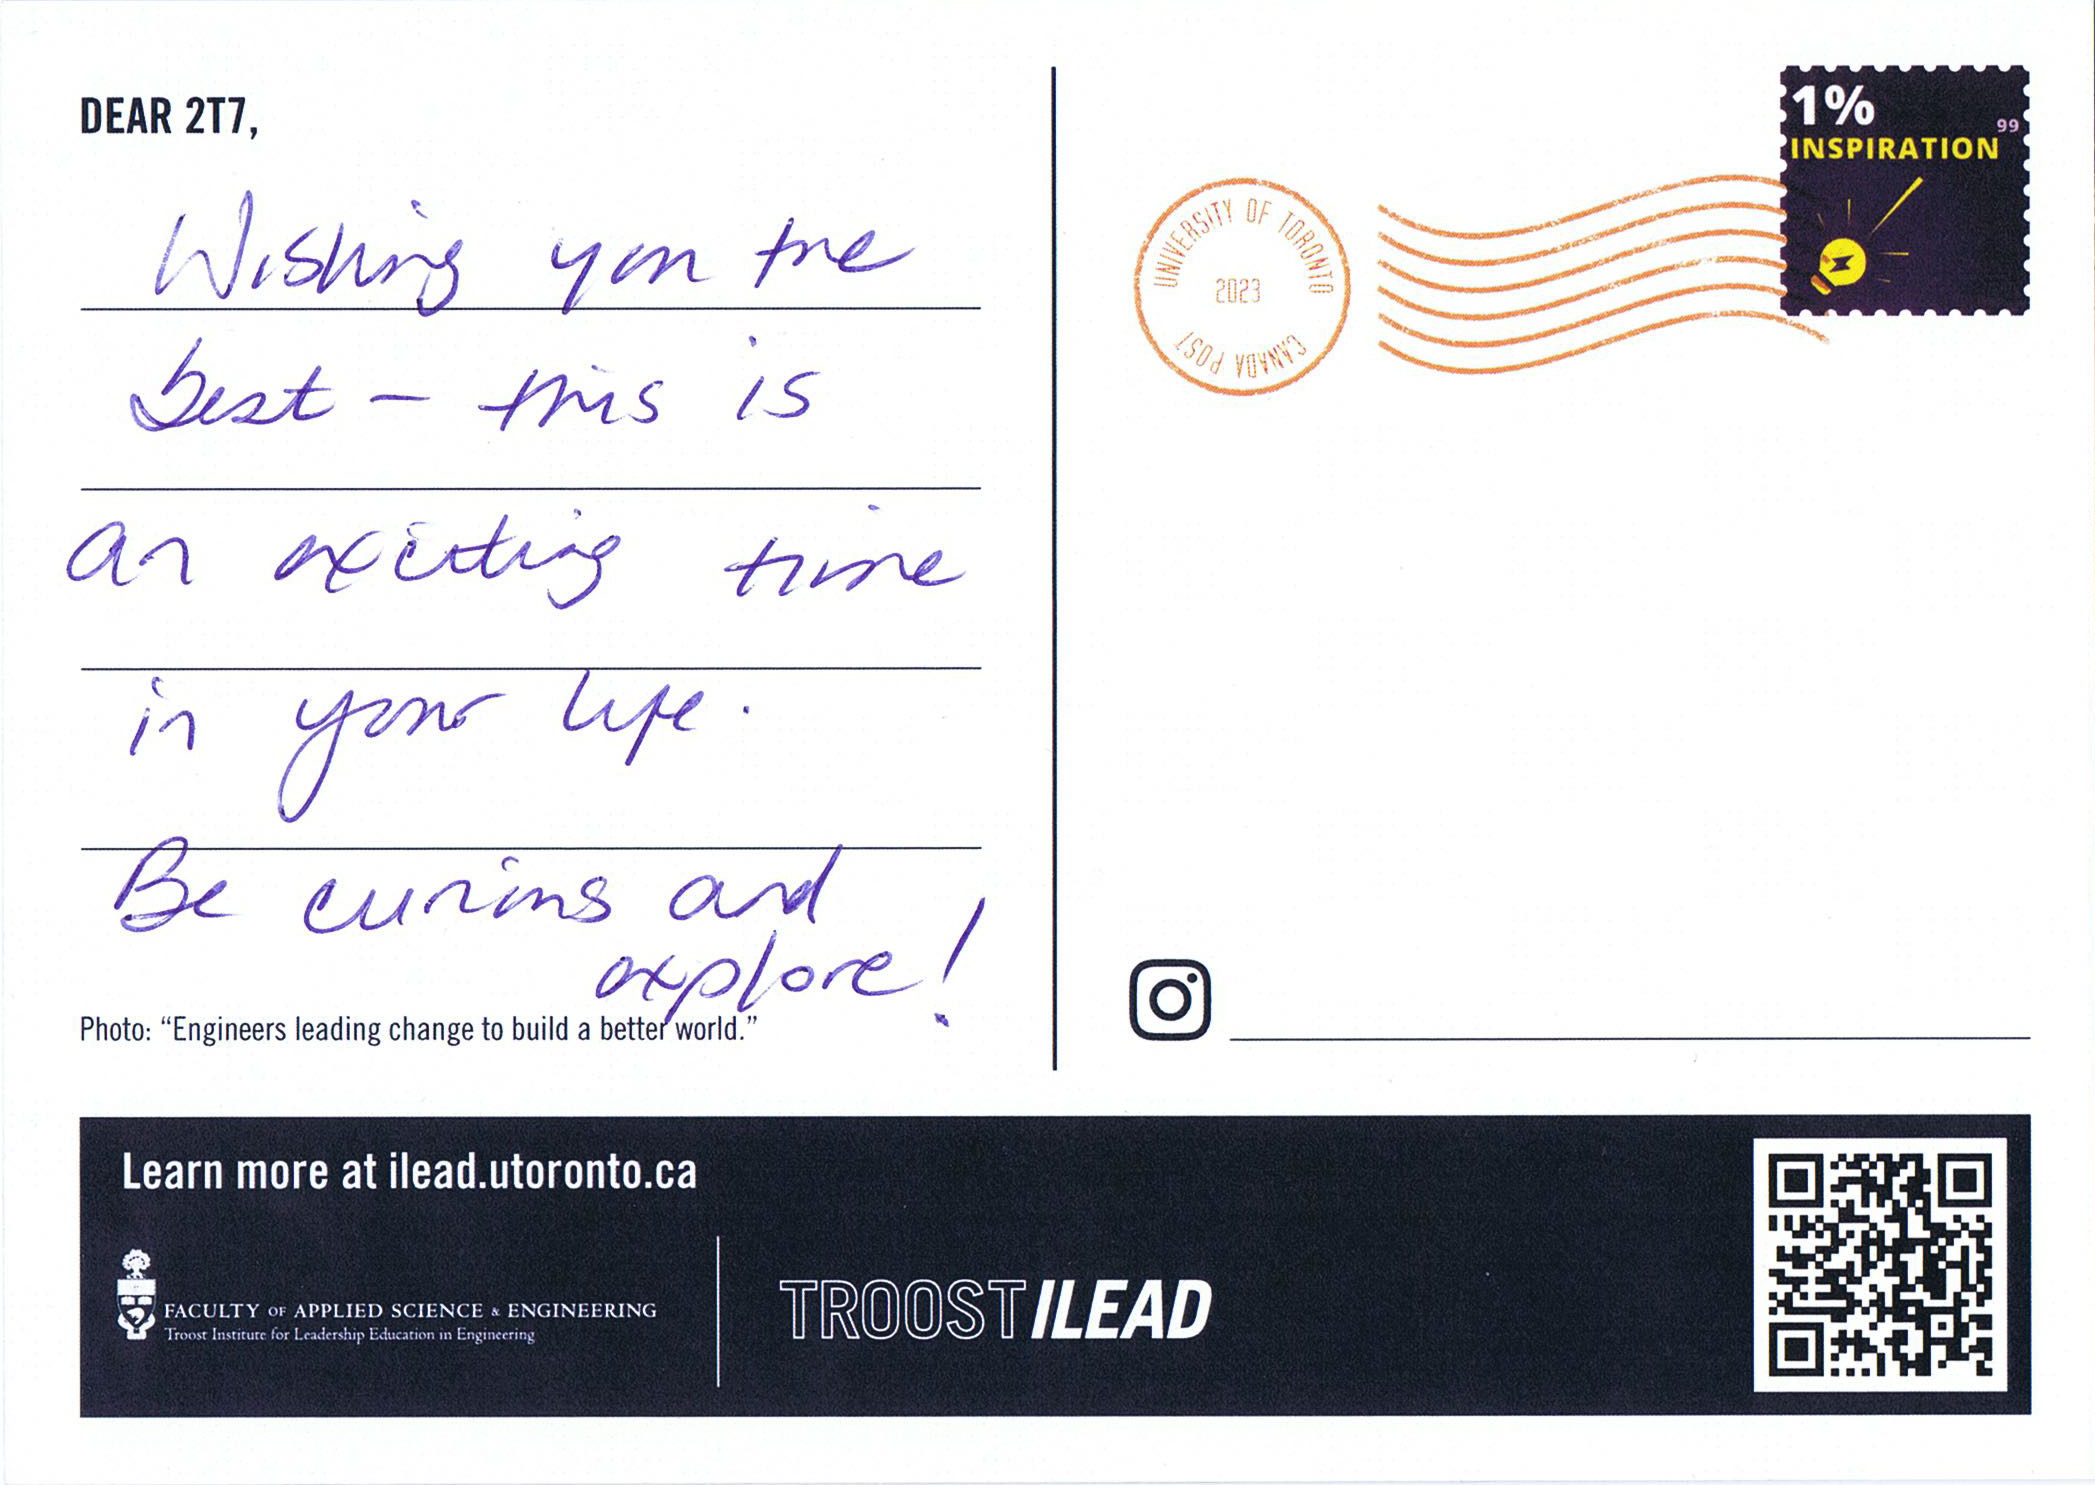 DEAR 2T7,
Wishing you the
best – this is
an exciting time
in your life.
Be curious and
explore!
Photo: “Engineers leading change to build a better world.”
1%
99
INSPIRATION
UNIVERSITY OF TORONTO
2023
CANADA POST
Learn more at ilead.utoronto.ca
FACULTY OF APPLIED SCIENCE & ENGINEERING
Troost Institute for Leadership Education in Engineering
TROOST ILEAD